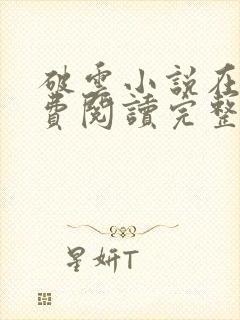 破雲小說在
費閱讀完整
星妍T